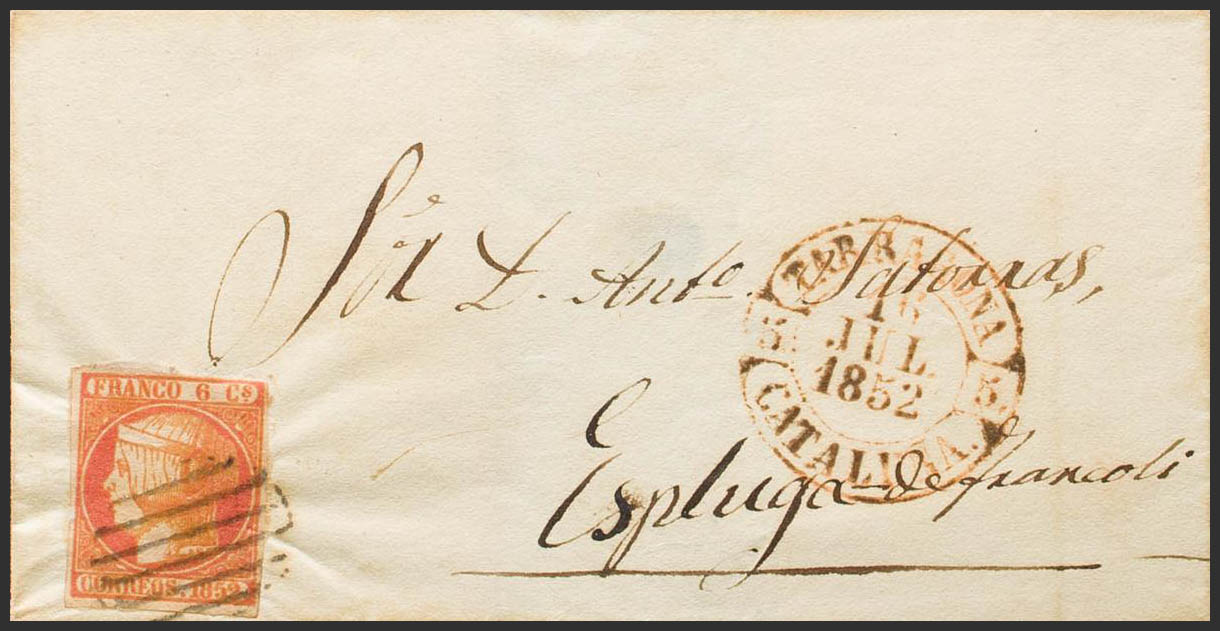 Sor. D. Anto. Satorras,
TARRAGONA
16
JUL.
1852
5. 5.
CATALUÑA.
FRANCO 6 Cs
CORREOS. 1852
Espluga de francoli